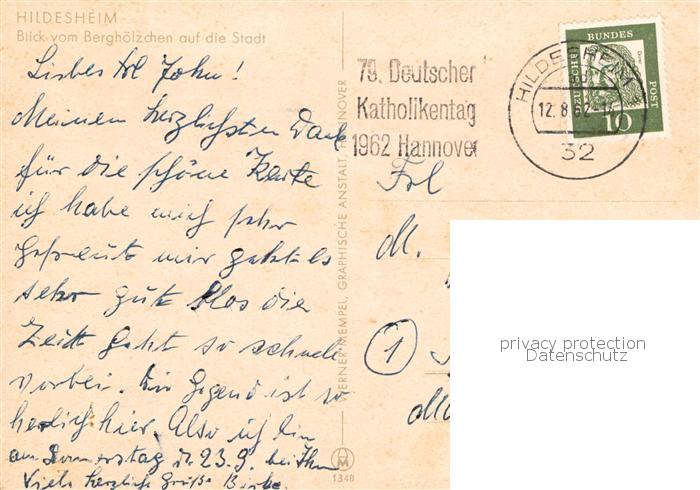 HILDESHEIM
Blick vom Berghölzchen auf die Stadt
Liebes Frl John!
Meinen herzlichsten Dank
für die schöne Karte
ich habe mich sehr
gefreut mir geht es
sehr gut blos die
Zeitt geht so schnell
vorbei. Die Gegend ist so
herlich hier. Also ich bin
am Donnerstag d. 23.9. bei Ihn
Viele herzliche Grüße
WERNER MEMPEL, GRAPHISCHE ANSTALT, HANNOVER
1348
79. Deutscher
Katholikentag
1962 Hannover
HILDESHEIM
12.8.62
32
DEUTSCHE BUNDESPOST
10
Frl
M.
1
privacy protection
Datenschutz